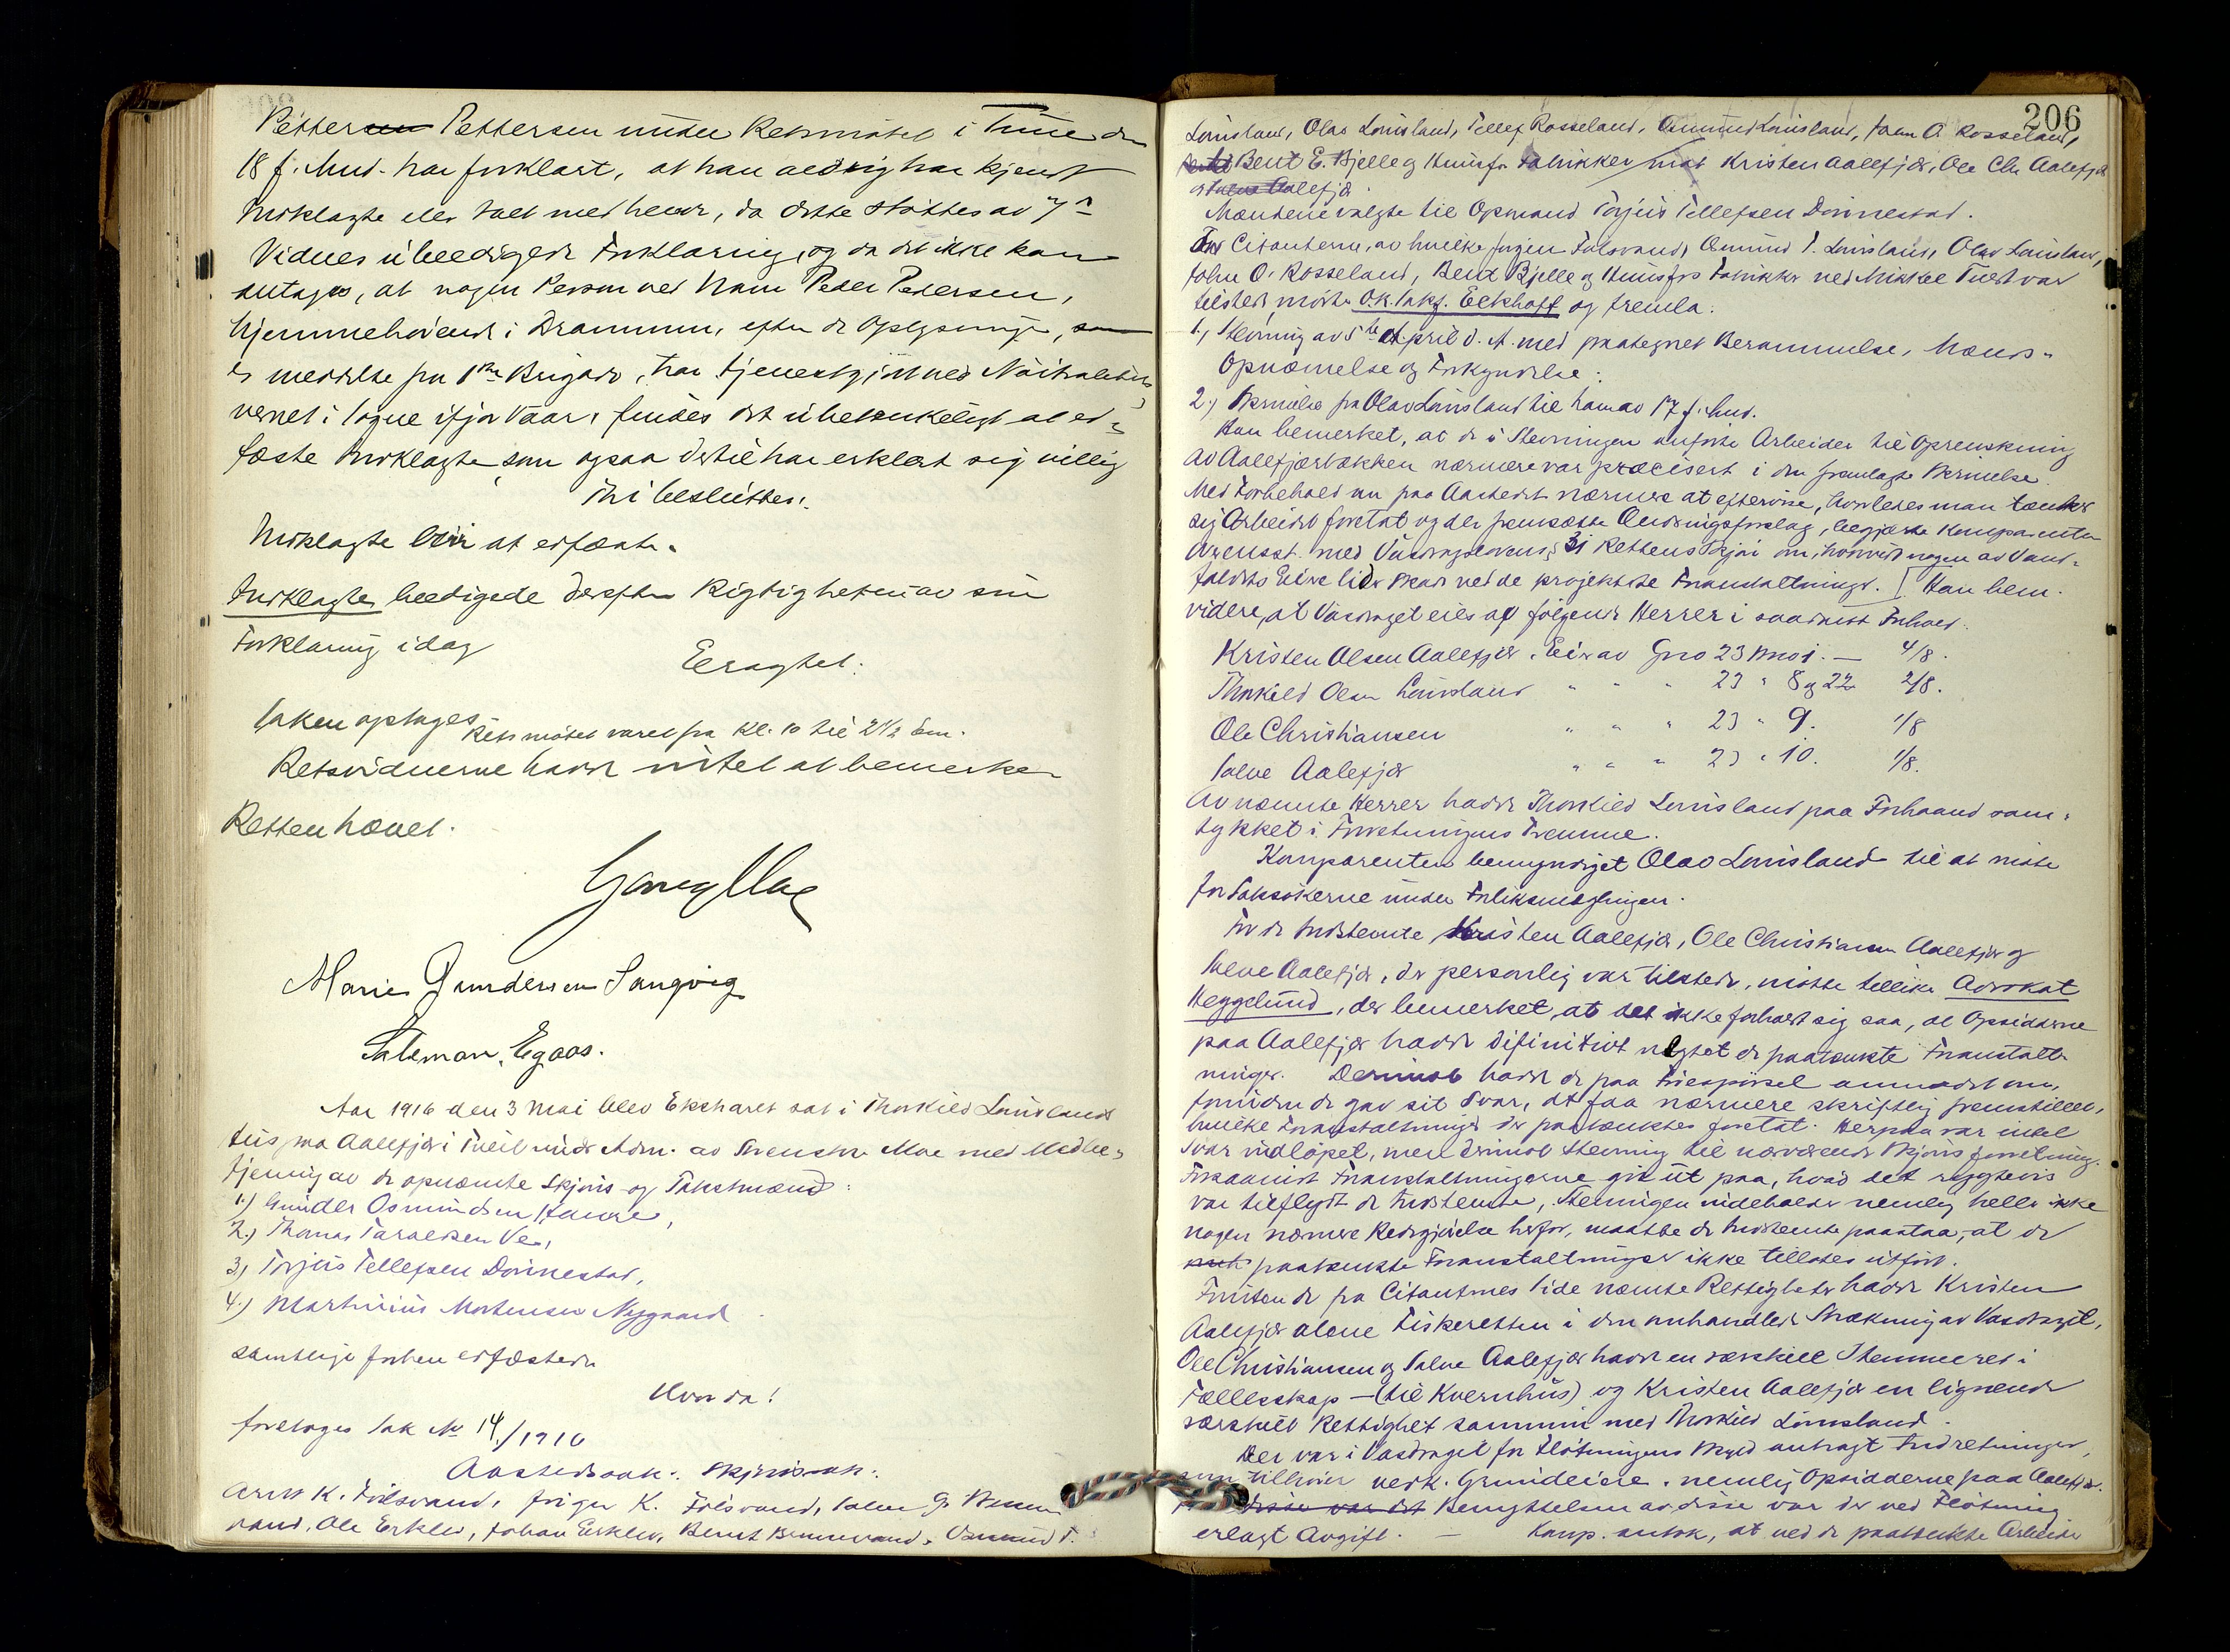 Petter Pettersen under Retsmötet i Tune den
18 f. Md. har forklart, at han aldrig har kjendt
Indklagte eller talt med ham, da dette støttes av 7de
Vidnes ubeedigede Forklaring, og da det ikke kan
antages, at nogen Person ved Navn Peder Pedersen,
hjemmehörende i Drammen, efter de Oplysninger, som
er meddelte fra 1ste Brigade, har tjenestgjort ved Nöitralitets
vernet i Sogne ifjor Vaar, findes det ubetænkeligt at ed-
fæste Indklagte, som ogsaa dertil har erklært sig villig
Thi besluttes:
Indklagte blir at edfæste.
Indklagte beedigede derefter Rigtigheten av sin
Forklaring idag
Eragtet:
Saken optages
Retsmötet varet fra Kl. 10 til 2 1/2 Em.
Retsvidnerne hadde intet at bemerke
Retten hævet.
Marie Gundersen Langvig
Salomon Egaas.
Aar 1916 den 3 Mai blev Ekstraret sat i Thorkild Lauvslands
Hus paa Aalefjær i Tveit under Adm. av Svenske Moe med Medbe-
tjening av de opnævnte Skjöns og Takstmænd:
1.) Gunder Osmundsen Haugen,
2.) Thomas Taraldsen Ve,
3.) Torjus Tellefsen Dönnestad,
4.) Martinius Mortensen Nygaard
samtlige forhen edfæstede
Hvorda!
foretages Sak No 14/1916
Aastedssak: Skjönssak:
Arne K. Foilsvand, Jörgen K. Foilsvand, Salve G.
vand, Ole Erklev, Johan Erklev, Bernt Bennevand, Osmund T.
206
Lauvsland, Olav Lauvsland, Tellef Rosseland, Osmund Lauvsland, John O. Rosseland,
Bent E. Bjelle og Hunsfos Fabrikker mot Kristen Aalefjær, Ole Chr. Aalefjær
og Salve Aalefjær.
Mændene valgte til Opmand Torjus Tellefsen Dönnestad.
For Citanterne, av hvilke Jørgen Foilsvand, Osmund T. Lauvsland, Olav Lauvsland,
John O. Rosseland, Bent Bjelle og Hunsfos Fabrikker ved Mikkel Tveit var
tilstede, mötte O.r.sakf. Eckhoff og fremla:
1.) Stevning av 5te April d. A. med paategnet Berammelse, Mænds-
Opnævnelse og Forkyndelse:
2.) Skrivelse fra Olav Lauvsland til ham av 17 f. Md.
Han bemerket, at de i Stevningen anførte Arbeider til Oprenskning
av Aalefjærbækken nærmere var præcisert i den fremlagte Skrivelse.
Med Forbehold om paa Aastedet nærmere at eftervise, hvorledes man tænker
sig Arbeidet foretat og der fremsætte Ændringsforslag, begjærte Komparenten
overensst. med Vasdragslovens § 31 Rettens Skjön om, hvorvidt nogen av Vand-
faldets Eiere lider Skade ved de projekterte Foranstaltninger. Han bem.
videre, at Vasdraget eies av følgende Herrer i saadant Forhold:
Kristen Olsen Aalefjær, Eier av Gno 23 Bno 1. — 4/8.
Thorkild Olsen Lauvsland " " " 23 " 8 og 22 2/8.
Ole Christiansen " " " 23 " 9. 1/8
Salve Aalefjær " " " 23 " 10. 1/8.
Av nævnte Herrer hadde Thorkild Lauvsland paa Forhaand sam-
tykket i Forretningens Fremme.
Komparenten bemyndiget Olav Lauvsland til at möte
for Saksökerne under Forliksmæglingen.
For de Indstevnte Kristen Aalefjær, Ole Christiansen Aalefjær og
Salve Aalefjær, der personlig var tilstede, mötte tillike Advokat
Heggelund, der bemerket, at det ikke forholdt sig saa, at Opsidderne
paa Aalefjær hadde difinitivt nægtet de paatænkte Foranstalt-
ninger. Derimot hadde de paa Forespörsel anmodet om,
forinden de gav sit Svar, at faa nærmere skriftlig fremstillet,
hvilke Foranstaltninger der paatænktes foretat. Herpaa var intet
Svar indløpet, men derimot Stevning til nærværende Skjönsforretning.
Forsaavidt Foranstaltningerne gik ut paa, hvad det rygtevis
var tilflydt de Indstevnte, Stevningen indeholder nemlig heller ikke
nogen nærmere Redegjörelse herfor, maatte de Indstevnte paastaa, at de
paatænkte Foranstaltninger ikke tillates utfört.
Foruten de fra Citanternes Side nævnte Rettigheter hadde Kristen
Aalefjær alene Fiskeretten i den omhandlede Strækning av Vasdraget,
Ole Christiansen og Salve Aalefjær hadde en særskilt Stemmeret i
Fællesskap — (til Kvernhus) og Kristen Aalefjær en lignende
særskilt Rettighet sammen med Thorkild Lauvsland.
Der var i Vasdraget for Flötningens Skyld anbragt Indretninger,
som tilhörer vedk. Grundeiere, nemlig Opsidderne paa Aalefjær.
disse var det Benyttelsen av disse var der ved Flötning
erlagt Avgift. — Komp. antok, at ved de paatænkte Arbeider